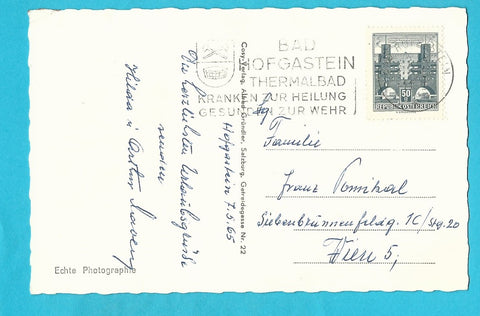 BAD
HOFGASTEIN
THERMALBAD
KRANKEN ZUR HEILUNG
GESUNDEN ZUR WEHR
50
REPUBLIK ÖSTERREICH
Hofgastein 7.5.65
Die herzlichsten Urlaubsgrüße
senden
Hilda u.
Cosy-Verlag, Alfred Gründler, Salzburg, Getreidegasse Nr. 22
Familie
Franz
Siebenbrunnenfeldg. 1C/Stg. 20
Wien 5,
Echte Photographie